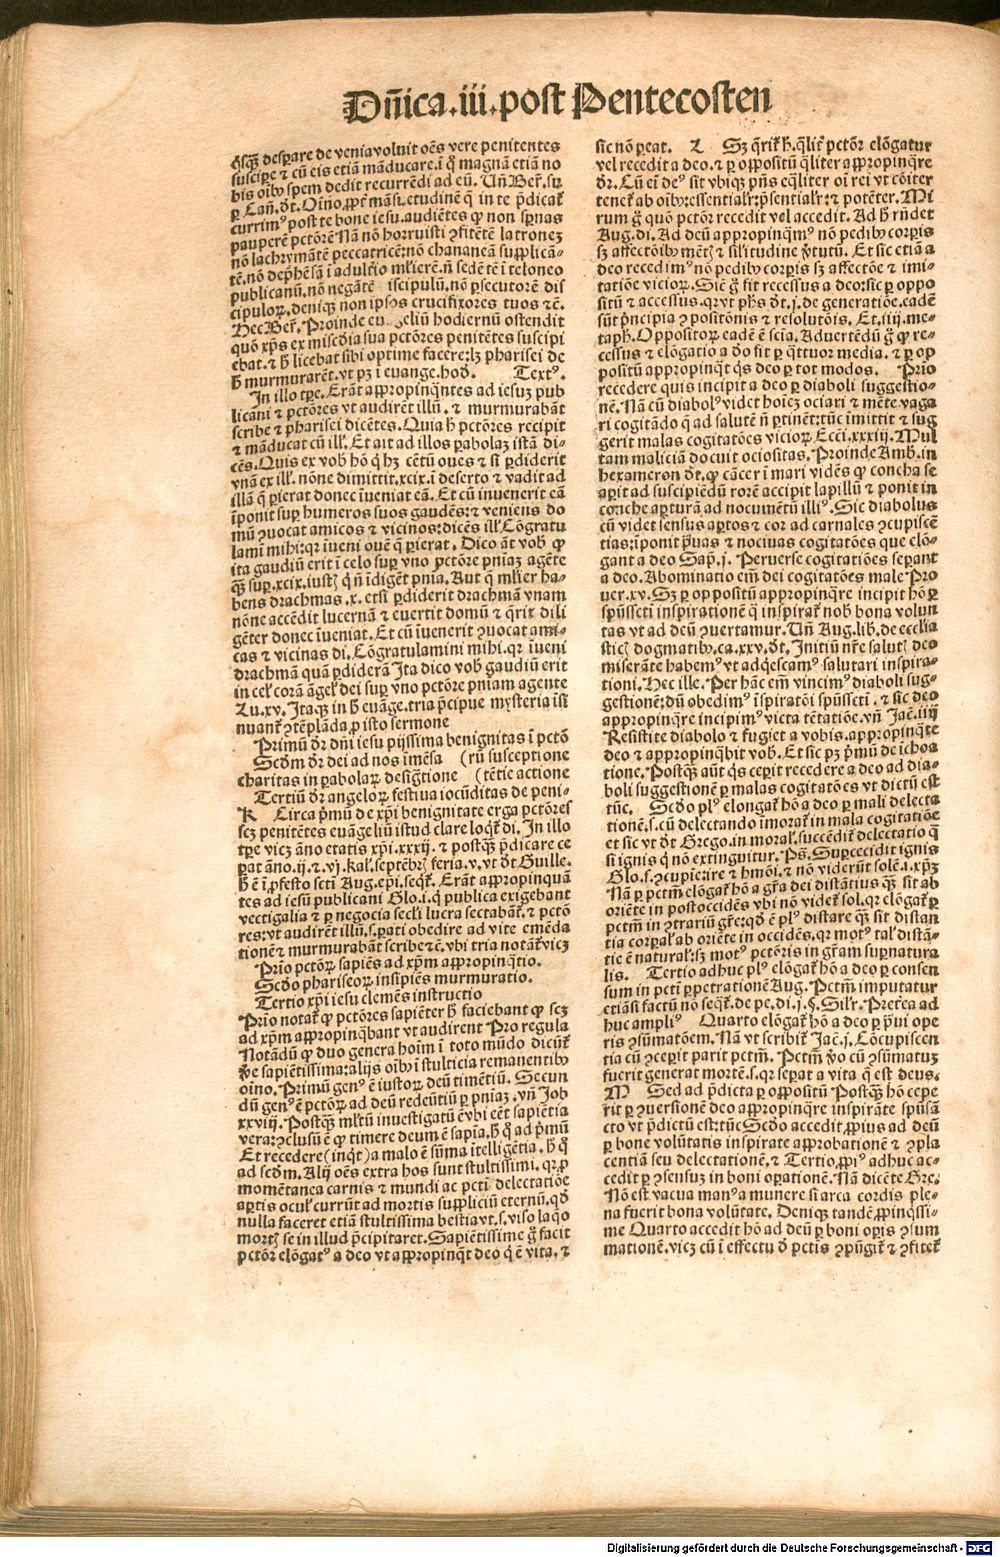 Dñica .iii. post Pentecosten
q̃sq̃ȝ desꝑare de venia voluit oẽs vere penitentes
suscipe ⁊ cũ eis etiã mãducare. ĩ q̊ magnã etiã no
bis oĩbꝰ spem dedit recurrẽdi ad eũ. Uñ Ber̃. su
ꝑ Cañ. dt̃. O ĩno, ꝓpt̃ mãsuetudinẽ q̃ in te p̃dicat̃
currimꝰ post te bone iesu. audiẽtes ꝙ non sꝑnas
pauperẽ pctõrẽ Nã nõ horruisti ꝯfitẽtẽ latronez
nõ lachrymãtẽ peccatricẽ: nõ chananeã supplicã-
tẽ. nõ dep̃hẽsã ĩ adultr̃io ml̃ierẽ. ñ sedẽtẽ ĩ teloneo
publicanũ. nõ negãtẽ iscipulũ. nõ ꝑsecutorẽ dis
cipuloꝝ. deniqȝ non ip̃sos crucifixores tuos ⁊c̃.
Hec Ber̃. Proinde euãgeliũ hodiernũ ostendit
quõ xp̃s ex mi̅a sua pctõres penitẽtes suscipi
ebat. ⁊ h̃ licebat sibi optime facere: lȝ pharisei de
h̃ murmurarẽt. vt pȝ ĩ euange. hod̃. Textꝰ.
In illo tꝑe. Erãt appropinq̃ntes ad iesuȝ pub
licani ⁊ pctõres vt audirẽt illũ. ⁊ murmurabãt
scribe ⁊ pharisei dicẽtes. Quia h̃ pctõres recipit
⁊ mãducat cũ ill̃. Et ait ad illos ꝑabolaȝ istã di-
cẽs. Quis ex vob̃ hõ q̊ hȝ cẽtũ oues ⁊ si ꝑdiderit
vnã ex ill̃. nõne dimittit. xcix. ĩ deserto ⁊ vadit ad
illã q̃ ꝑierat donec ĩueniat eã. Et cũ invenerit eã
ĩponit suꝑ humeros suos gaudẽs: ⁊ veniens do
mũ ꝯuocat amicos ⁊ vicinos: dicẽs ill̃ Cõgratu
lamĩ mihi: qr iueni ouẽ q̃ ꝑierat. Dico ãt vob̃ ꝙ
ita gaudiũ erit ĩ celo suꝑ vno pctõre pniaȝ agẽte
q̃ȝ suꝑ. xcix. iust̃ q̃ ñ ĩdigẽt pnia. Aut q̃ ml̃ier ha-
bens drachmas .x. etsi ꝑdiderit drachmã vnam
nõne accẽdit lucernã ⁊ euertit domũ ⁊ q̃rit dili
gẽter donec ĩueniat. Et cũ ĩuenerit ꝯuocat ami-
cas ⁊ vicinas di. Cõgratulamini mihi. qr iueni
drachmã quã ꝑdiderã Ita dico vob̃ gaudiũ erit
in cel̃ corã ãgel̃ dei suꝑ vno pctõre pniam agente
Lu. xv. Itaqȝ in h̃ euãge. tria p̃cipue mysteria ĩsi
nuant̃ ꝯtẽplãda ꝓ isto sermone
Primũ dr̃ dñi iesu pijssima benignitas ĩ pctõ
Scd̃m dr̃ dei ad nos ĩmẽsa (rũ susceptione
charitas in ꝑabolaꝝ desig̃tione (tẽtie actione
Tertiũ dr̃ angeloꝝ festiua iocũditas de peni-
K Circa p̃mũ de xp̃i benignitate erga pctõres
scȝ penitẽtes euãgeliũ istud clare loq̃t̃ di. In illo
tꝑe vicȝ ãno etatis xp̃i. xxxij. ⁊ postq̃ȝ p̃dicare ce
ꝑat ãno. ij. ⁊ vj. kal̃. septẽbr̃ feria. v. vt dt̃ Guille.
h̃ ẽ ĩ ꝓfesto scti Aug. epĩ. seq̃t̃. Erãt appropinquã
tes ad iesũ publicani Glo. i. q̃ publica exigebant
vectigalia ⁊ ꝑ negocia secl̃i lucra sectabãt̃. ⁊ pctõ
res: vt audirẽt illũ. s. ꝑati obedire ad vite emẽda
tionẽ ⁊ murmurabãt scribe ⁊c̃. vbi tria notãt̃ vicȝ
Prĩo pctõꝝ sapiẽs ad xp̃m appropinq̃tio.
Scd̃o phariseoꝝ insipiẽs murmuratio.
Tertio xp̃i iesu clemẽs instructio
Prĩo notat̃ ꝙ pctõres sapiẽter h̃ faciebant ꝙ scȝ
ad xp̃m appropinq̃bant vt audirent Pro regula
Notãdũ ꝙ duo genera hoĩm ĩ toto mũdo dicũt̃
ẽe sapiẽtissima: alijs oĩbꝰ ĩ stulticia remanentibꝰ
oĩno. Primũ genꝰ ẽ iustoꝝ deũ timẽtiũ. Secun
dũ genꝰ ẽ pctõꝝ ad deũ redeũtiũ ꝑ pniaȝ. vñ Job
xxviij. Postq̃ȝ ml̃tũ inuestigatũ ẽ vbi eẽt sapiẽtia
vera: ꝯclusũ ẽ ꝙ timere deum ẽ sapĩa. h̃ q̊ ad p̃mũ
Et recedere (inq̃t) a malo ẽ sũma ĩtelligẽtia. h̃ q̊
ad scd̃m. Alij oẽs extra hos sunt stultissimi. qr ꝓ
momẽtanea carnis ⁊ mundi ac pctĩ delectatiõe
aꝑtis ocul̃ currũt ad mortis suppliciũ eternũ. qd̃
nulla faceret etiã stultissima bestia vt. s. viso laqo
mort̃ se in illud p̃cipitaret. Sapiẽtissime g̃ facit
pctõr elõgatꝰ a deo vt appropinq̃t deo q̊ ẽ vita. ⁊
sic nõ ꝑeat. L Sȝ q̃rit̃ h̃. q̃lit̃ pctõr elõgatur
vel recedit a deo. ⁊ ꝑ oppositũ q̃liter appropinq̃re
dr̃. Cũ eĩ deꝰ sit vbiqȝ pñs eq̃liter oĩ rei vt cõiter
tenet̃ ab oĩbꝰ: essential̃r: p̃sential̃r: ⁊ potẽter. Mi
rum g̃ quõ pctõr recedit vel accedit. Ad h̃ rñdet
Aug. di. Ad deũ appropinq̃mꝰ nõ pedibꝰ corꝑis
sȝ affectõibꝰ mẽt̃ ⁊ sil̃itudine v̓tutũ. Et sic etiã a
deo recedimꝰ nõ pedibꝰ corꝑis sȝ affectõe ⁊ imi-
tatiõe vicioꝝ. Sic̃ g̃ fit recessus a deo: sic ꝑ oppo
sitũ ⁊ accessus. qr vt ph̃s dt̃. j. de generatiõe. eadẽ
sũt p̃ncipia ꝯpositõnis ⁊ resolutõis. Et. iiij. me-
taph̃. Oppositoꝝ eadẽ ẽ scĩa. Aduertẽdũ g̃ ꝙ re-
cessus ⁊ elõgatio a d̃o fit ꝑ q̃ttuor media. ⁊ ꝑ op
positũ appropinq̃t q̃s deo ꝑ tot modos. Prĩo
recedere quis incipit a deo ꝑ diaboli suggestio-
nẽ. Nã cũ diabolꝰ videt hoĩeȝ ociari ⁊ mẽte vaga
ri cogitãdo q̃ ad salutẽ ñ ꝑtinẽt: tũc ĩmittit ⁊ sug
gerit malas cogitatões vicioꝝ. Ecci. xxxiij. Mul
tam maliciã docuit ociositas. Proinde Amb. in
hexameron dt̃. ꝙ cãcer ĩ mari vidẽs ꝙ concha se
aꝑit ad suscipiẽdũ rorẽ accipit lapillũ ⁊ ponit in
conche aꝑturã ad nocumẽtũ illiꝰ. Sic diabolus
cũ videt sensus aꝑtos ⁊ cor ad carnales ꝯcupiscẽ
tias: ĩponit p̃uas ⁊ nociuas cogitatões que elõ-
gant a deo Sap̃. j. Peruerse cogitatiões seꝑant
a deo. Abominatio em̃ dei cogitatões male Pro
uer. xv. Sȝ ꝑ oppositũ appropinq̃re incipit hõ ꝑ
spũsscti inspirationẽ q̃ inspirat̃ nob̃ bona volun
tas vt ad deũ ꝯuertamur. Uñ Aug. lib. de ecclia
stic̃ dogmatibꝰ. ca. xxv. dt̃. Initiũ nr̃e salut̃ deo
miserãte habemꝰ vt adq̃escamꝰ salutari inspira-
tioni. Hec ille. Per hãc em̃ vincimꝰ diaboli sug-
gestionẽ: dũ obedimꝰ ĩspiratõi spũsscti. ⁊ sic deo
appropinq̃re incipimꝰ victa tẽtatiõe. vñ Jac̃. iiij
Resistite diabolo ⁊ fugiet a vobis. appropinq̃te
deo ⁊ appropinq̃bit vob̃. Et sic pȝ p̃mũ de ichoa
tione. Postq̃ȝ aũt q̃s ceꝑit recedere a deo ad dia-
boli suggestionẽ ꝑ malas cogitatões vt dictũ est
tũc. Scd̃o plꝰ elongat̃ hõ a deo ꝑ mali delecta
tionẽ. s. cũ delectando ĩmorat̃ in mala cogitatiõe
et sic vt dt̃ Grego. in moral̃. succẽdit̃ delectatio q̃
si ignis q̃ nõ extinguitur. Ps̃. Suꝑcecidit ignis
Glo. s. ꝯcupie: ire ⁊ hmõi. ⁊ nõ viderũt solẽ. i. xp̃ȝ
Nã ꝑ pctm̃ elõgat̃ hõ a gr̃a dei distãtius q̃ȝ sit ab
oriẽte in postoccidẽs vbi nõ videt̃ sol. qr elõgat̃ ꝑ
pctm̃ in ꝯtrariũ gr̃e: qd̃ ẽ plꝰ distare q̃ȝ sit distan
tia corꝑal̃ ab oriẽte in occidẽs. qr motꝰ tal̃ distã-
tie ẽ natural̃: sȝ motꝰ pctõris in gr̃am suꝑnatura
lis. Tertio adhuc plꝰ elõgat̃ hõ a deo ꝑ consen
sum in pctĩ ꝑpetrationẽ Aug. Pctm̃ imputatur
etiãsi factũ nõ seq̃t̃. de pe. di. j. §. Sil̃r. Pret̃ea ad
huc ampliꝰ Quarto elõgat̃ hõ a deo ꝑ p̃ui ope
ris ꝯsũmatõem. Nã vt scribit̃ Jac̃. j. Cõcupiscen
tia cũ ꝯceꝑit parit pctm̃. Pctm̃ v̓o cũ ꝯsũmatuȝ
fuerit generat mortẽ. s. qr seꝑat a vita q̃ est deus.
M Sed ad p̃dicta ꝑ oppositũ Postq̃ȝ hõ cepe
rit ꝑ ꝯuersionẽ deo appropinq̃re inspirãte spũsã
cto vt p̃dictũ est: tũc Scd̃o accedit ꝓpius ad deũ
ꝑ bone volũtatis inspirate approbationẽ ⁊ ꝯpla
centiã seu delectationẽ. ⁊ Tertio, ꝓpiꝰ adhuc ac-
cedit ꝑ ꝯsensuȝ in boni oꝑationẽ. Nã dicẽte Gre.
Nõ est vacua manꝰ a munere si arca cordis ple-
na fuerit bona volũtate. Deniqȝ tandẽ, ꝓpinq̃ssi-
me Quarto accedit hõ ad deũ ꝑ boni oꝑis ꝯsum
mationẽ. vicȝ cũ ĩ effectu d̃ pctis ꝯpũgit̃ ⁊ ꝯfitet̃
Digitalisierung gefördert durch die Deutsche Forschungsgemeinschaft - DFG